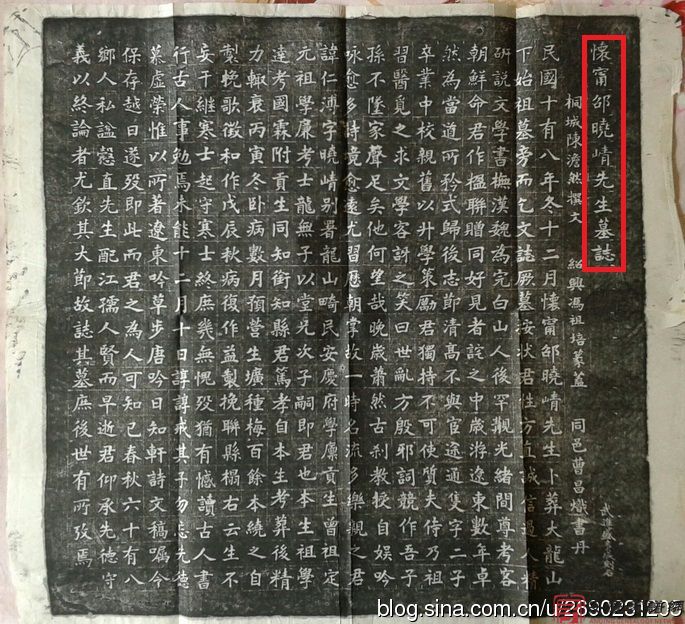 懷甯邵曉崝先生墓誌
桐城陳澹然撰文 紹興馮祖培篆蓋 同邑曹昌熾書丹
民國十有八年冬十二月懷甯邵曉崝先生卜葬大龍山
下始祖墓旁而乞文誌厥墓按狀君性方直誠信過人精
研說文學書撫漢魏為完白山人後罕覯光緒間尊考客
朝鮮命君作楹聯贈同好見者詫之中歲游遼東數年卓
然為當道所矜式歸後志節清高不與官途通隻字二子
卒業中校親舊以升學策勵君獨持不可使質夫侍乃祖
習醫覓之求文學客訝之笑曰世亂方殷邪詞競作吾子
孫不墜家聲足矣他何望哉晚歲蕭然古刹教授自娛吟
咏愈多詩境愈遠尤習歷朝掌故一時名流多樂親之君
諱仁溥字曉崝別署龍山畸民安慶府學廩貢生曾祖定
元祖學廉考士龍無子以堂兄次子嗣即君也本生祖學
達考國霖附貢生同知銜知縣君篤孝自本生考葬後精
力輒衰丙寅冬卧病數月預營生壙種梅百餘本繞之自
製挽歌徵和作戊辰秋病復作益製挽聯縣榻右云生不
妄干繼寒士起守寒士終庶幾無愧歿猶有憾讀古人書
行古人事勉焉未能十二月十日諄諄戒其子勿忘先德
慕虛榮惟以所著遼東吟草步唐吟日知軒詩文稿囑令
保存越日遂歿即此而君之為人可知已春秋六十有八
鄉人私謚愨直先生配江孺人賢而早逝君仰承先德守
義以終論者尤欽其大節故誌其墓庶後世有所攷焉
blog.sina.com.cn/u/2690231203